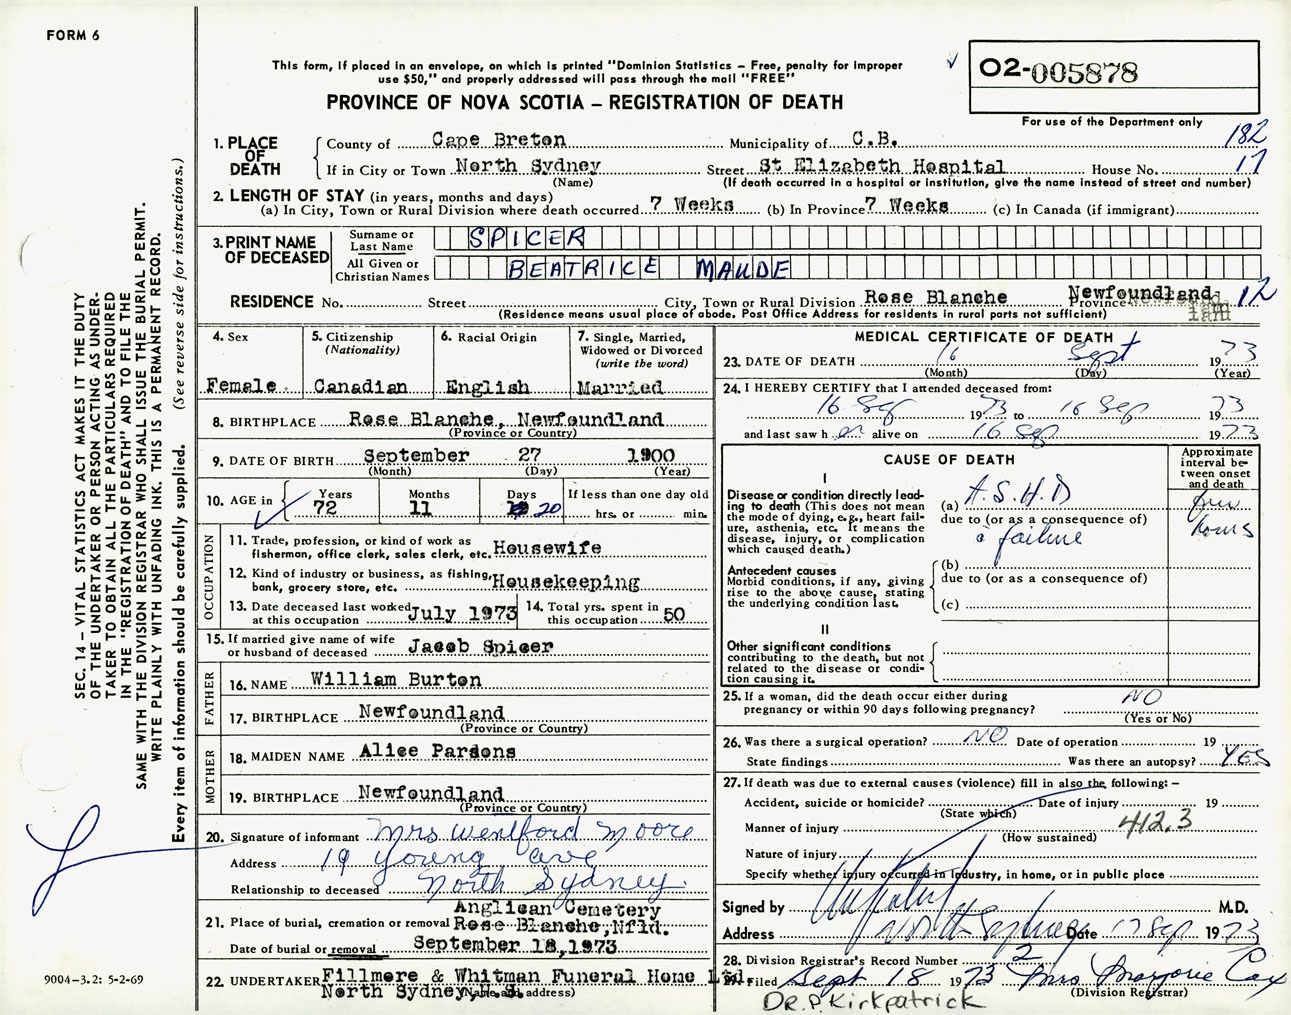 FORM 6
This form, if placed in an envelope, on which is printed "Dominion Statistics – Free, penalty for improper
use $50," and properly addressed will pass through the mail "FREE"
PROVINCE OF NOVA SCOTIA – REGISTRATION OF DEATH
02-005878
For use of the Department only
182
17
1. PLACE OF DEATH
County of Cape Breton Municipality of C.B.
If in City or Town North Sydney Street St Elizabeth Hospital House No.
(Name) (If death occurred in a hospital or institution, give the name instead of street and number)
2. LENGTH OF STAY (in years, months and days)
(a) In City, Town or Rural Division where death occurred 7 Weeks (b) In Province 7 Weeks (c) In Canada (if immigrant)
3. PRINT NAME OF DECEASED
Surname or Last Name SPICER
All Given or Christian Names BEATRICE MAUDE
RESIDENCE No. Street City, Town or Rural Division Rose Blanche Province Newfoundland 12
(Residence means usual place of abode. Post Office Address for residents in rural parts not sufficient)
4. Sex Female
5. Citizenship (Nationality) Canadian
6. Racial Origin English
7. Single, Married, Widowed or Divorced (write the word) Married
8. BIRTHPLACE Rose Blanche, Newfoundland
(Province or Country)
9. DATE OF BIRTH September 27 1900
(Month) (Day) (Year)
10. AGE in Years 72 Months 11 Days 20 If less than one day old
hrs. or min.
OCCUPATION
11. Trade, profession, or kind of work as
fisherman, office clerk, sales clerk, etc. Housewife
12. Kind of industry or business, as fishing,
bank, grocery store, etc. Housekeeping
13. Date deceased last worked
at this occupation July 1973
14. Total yrs. spent in
this occupation 50
15. If married give name of wife
or husband of deceased Jacob Spicer
FATHER
16. NAME William Burton
17. BIRTHPLACE Newfoundland
(Province or Country)
MOTHER
18. MAIDEN NAME Alice Parsons
19. BIRTHPLACE Newfoundland
(Province or Country)
20. Signature of informant Mrs Wentford Moore
Address 19 Young Ave
Relationship to deceased North Sydney
21. Place of burial, cremation or removal Anglican Cemetery
Rose Blanche, Nfld.
Date of burial or removal September 18, 1973
22. UNDERTAKER Fillmore & Whitman Funeral Home Ltd.
North Sydney, N.S.
(Name and address)
MEDICAL CERTIFICATE OF DEATH
23. DATE OF DEATH 16 Sept 1973
(Month) (Day) (Year)
24. I HEREBY CERTIFY that I attended deceased from:
16 Sep 1973 to 16 Sep 1973
and last saw h er alive on 16 Sep 1973
CAUSE OF DEATH
Approximate interval between onset and death
I
Disease or condition directly lead-
ing to death (This does not mean
the mode of dying, e.g., heart fail-
ure, asthenia, etc. It means the
disease, injury, or complication
which caused death.)
(a) A.S.H.D
due to (or as a consequence of)
c̄ failure
few
hours
Antecedent causes
Morbid conditions, if any, giving
rise to the above cause, stating
the underlying condition last.
(b)
due to (or as a consequence of)
(c)
II
Other significant conditions
contributing to the death, but not
related to the disease or condi-
tion causing it.
25. If a woman, did the death occur either during
pregnancy or within 90 days following pregnancy? NO
(Yes or No)
26. Was there a surgical operation? NO Date of operation 19
State findings Was there an autopsy? YES
27. If death was due to external causes (violence) fill in also the following: –
Accident, suicide or homicide? Date of injury 19
(State which)
Manner of injury 412.3
(How sustained)
Nature of injury
Specify whether injury occurred in industry, in home, or in public place
Signed by M.D.
Address North Sydney Date 17 Sep 1973
28. Division Registrar's Record Number 2
29. Filed Sept 18 1973 Mrs Marjorie Cox
(Division Registrar)
DR. P. Kirkpatrick
SEC. 14 – VITAL STATISTICS ACT MAKES IT THE DUTY
OF THE UNDERTAKER OR PERSON ACTING AS UNDER-
TAKER TO OBTAIN ALL THE PARTICULARS REQUIRED
IN THE "REGISTRATION OF DEATH" AND TO FILE THE
SAME WITH THE DIVISION REGISTRAR WHO SHALL ISSUE THE BURIAL PERMIT.
WRITE PLAINLY WITH UNFADING INK. THIS IS A PERMANENT RECORD.
Every item of information should be carefully supplied. (See reverse side for instructions.)
9004-3.2: 5-2-69